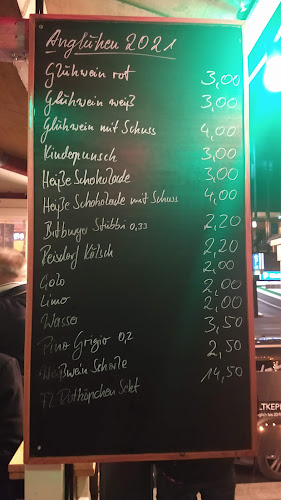 Anglühen 2021
Glühwein rot 3,00
Glühwein weiß 3,00
Glühwein mit Schuss 4,00
Kinderpunsch 3,00
Heiße Schokolade 3,00
Heiße Schokolade mit Schuss 4,00
Bitburger Stubbi 0,33 2,20
Reisdorf Kölsch 2,20
Cola 2,00
Limo 2,00
Wasser 2,00
Pino Grigio 0,2 3,50
Weißwein Schorle 2,50
Fl. Rotkäpchen Sekt 14,50